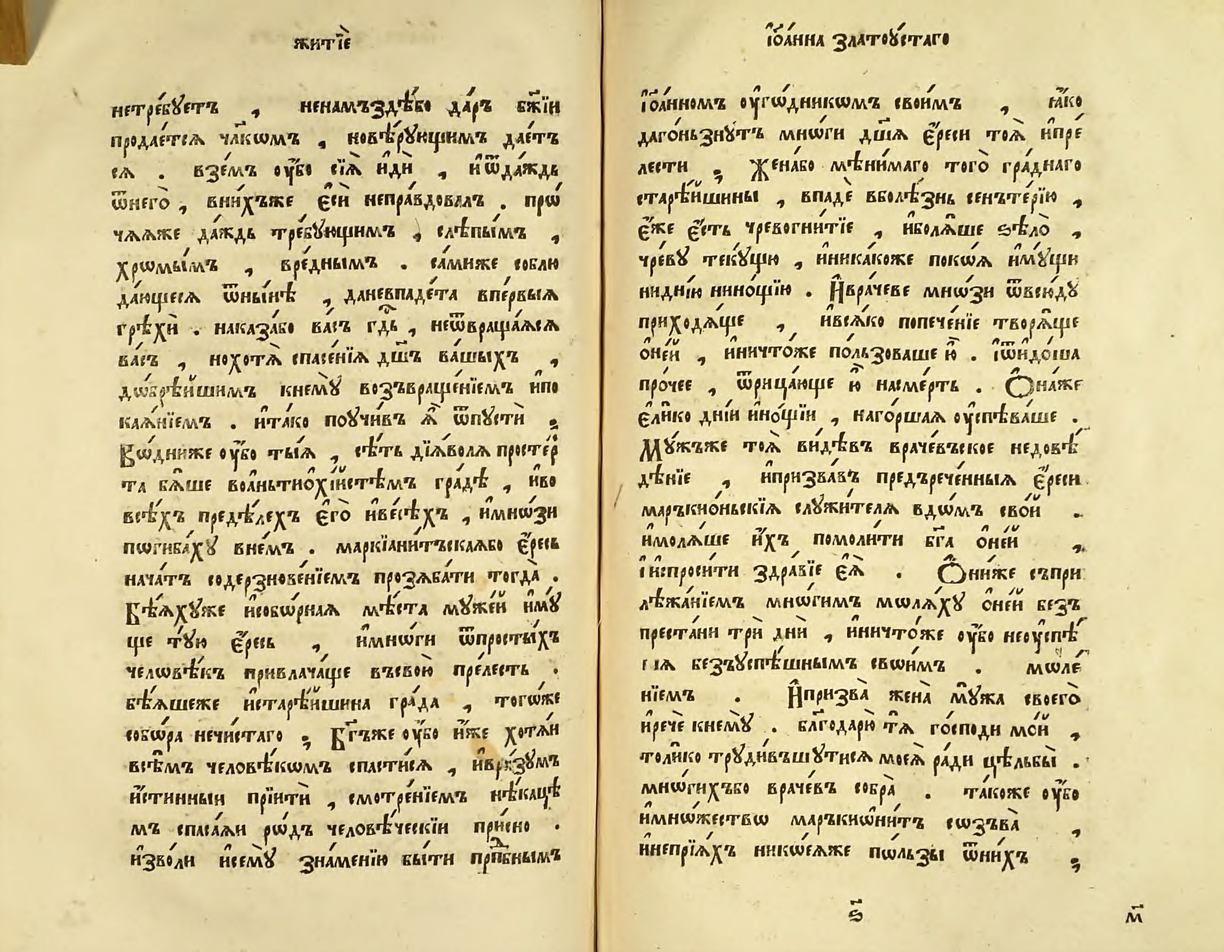 житїѐ
нетре́бꙋетъ , ненамъздѣ́бо да́ръ бж҃їи
продае́тсѧ чл҃кѡмъ , новѣ́рꙋющимъ дае́тъ
сѧ . взе́мъ ᲂу҆́бо сїѧ̀ идѝ , иѿда́ждь
ѿнего̀ , внихъже є҆сѝ непра́вдовалъ . прѡ́
чѧѧже да́ждь тре́бꙋющимъ , слѣпы́мъ ,
хрѡмы́мъ , вре́днымъ . са́миже соблю
да́ющесѧ ѿны́нѣ , даневпаде́та впе́рвыѧ
грѣхѝ . наказа́бо ва́съ гд҇ь , неѿвраща́ѧсѧ
ва́съ , нохотѧ̀ спасе́нїѧ дш҃ъ ва́шыхъ ,
дѡбрѣ́йшимъ кнемꙋ̀ возъвраще́нїемъ ипо
каѧ́нїемъ . ита́ко поꙋчи́въ ѧ҆̀ ѿпꙋстѝ ;
Во́дниже ᲂу҆́бо ты́ѧ , сѣ́ть дїѧ́волѧ просте́р
та бѧ́ше воа҆ньтиохі́йстѣмъ гра́дѣ , иво
всѣ́хъ предѣ́лехъ є҆гѡ̀ иве́сѣхъ , имно́зи
пѡгиба́хꙋ вне́мъ . маркїани́тъскаѧбо є҆́ресь
нача́тъ содерзнове́нїемъ прозѧба́ти тогда̀ .
Бѣ́ѧхꙋже исобѡ́рнаѧ мѣ́ста мꙋже́й имꙋ́
ще тꙋ́ю є҆́ресь , имно́ги ѿпросты́хъ
человѣ́къ привлача́ще въсвою̀ пре́лесть .
бѣ́ѧшеже истарѣ́йшина гра́да , тогѡ́же
собѡ́ра нечи́стаго ; Бг҃ъже ᲂу҆́бо и҆́же хотѧ́и
всѣ́мъ человѣ́кѡмъ спасти́сѧ , ивра́зꙋмъ
и҆́стинныи прїитѝ , смотре́нїемъ нѣ́кацѣ
мъ спаса́ѧи рѡ́дъ человѣ́ческїи при́сно .
изво́ли исемꙋ̀ зна́менїю бы́ти прпⷣбнымъ
і҆ѡа́нна златоꙋ́стаго
і҆ѡа́нномъ ᲂуго́дникѡмъ свои́мъ , ꙗ҆́ко
даго́ньзнꙋтъ мно́ги дш҃ѧ є҆́реси тоѧ̀ ипре́
лести ; Жена́бо мѣни́маго того̀ гра́днаго
старѣ́йшины , впадѐ вболѣ́знь сенътері́ю ,
є҆́же є҆́сть чревогнитїе , иболѧ́ше ѕѣлѡ̀ ,
чре́вꙋ текꙋ́щю , иника́коже поко́ѧ имꙋ́щи
нидні́ю нинощі́ю . Иврачеве мно́зи ѿвсю́дꙋ
приходѧ́ще , ивсѧ́ко попече́нїе творѧ́ще
о҆не́й , иничто́же по́льзоваше ю҆̀ . і҆ѿидо́ша
про́чее , ѿрица́юще ю҆̀ насме́рть . О҆на́же
є҆ли́ко дні́и ино́щїи , наго́ршаѧ ᲂуспѣ́ваше .
Мꙋ́жъже тоѧ̀ ви́дѣвъ враче́въское недовѣ́
дѣ́нїе , ипризва́въ предърече́нныѧ є҆́реси
маръкїо́ньскїѧ слꙋжи́телѧ вдо́мъ сво́й .
имолѧ́ше и҆́хъ помоли́ти бг҃а о҆не́й ,
і҆испроси́ти здра́вїе є҆ѧ̀ . О҆ни́же съпри
лѣжа́нїемъ мно́гимъ мѡлѧ́хꙋ о҆не́й безъ
преста́ни трѝ днѝ , иничто́же ᲂу҆́бо неꙋспѣ́
ша безъꙋспѣ́шнымъ свои́мъ . мѡле́
нїемъ . Ипризва̀ жена̀ мꙋ́жа своего̀
иречѐ кнемꙋ̀ . благодарю̀ тѧ̀ го́споди мо́й ,
толи́ко трꙋди́въшꙋтисѧ моеѧ̀ ра́ди цѣльбы̀ .
мно́гихъбо враче́въ собра̀ . та́коже ᲂу҆́бо
имно́жество маръкиѡни́тъ сѡзъва̀ ,
инепрїѧ́хъ никое́ѧже по́льзы ѿни́хъ ;
ѕ҃ м҃